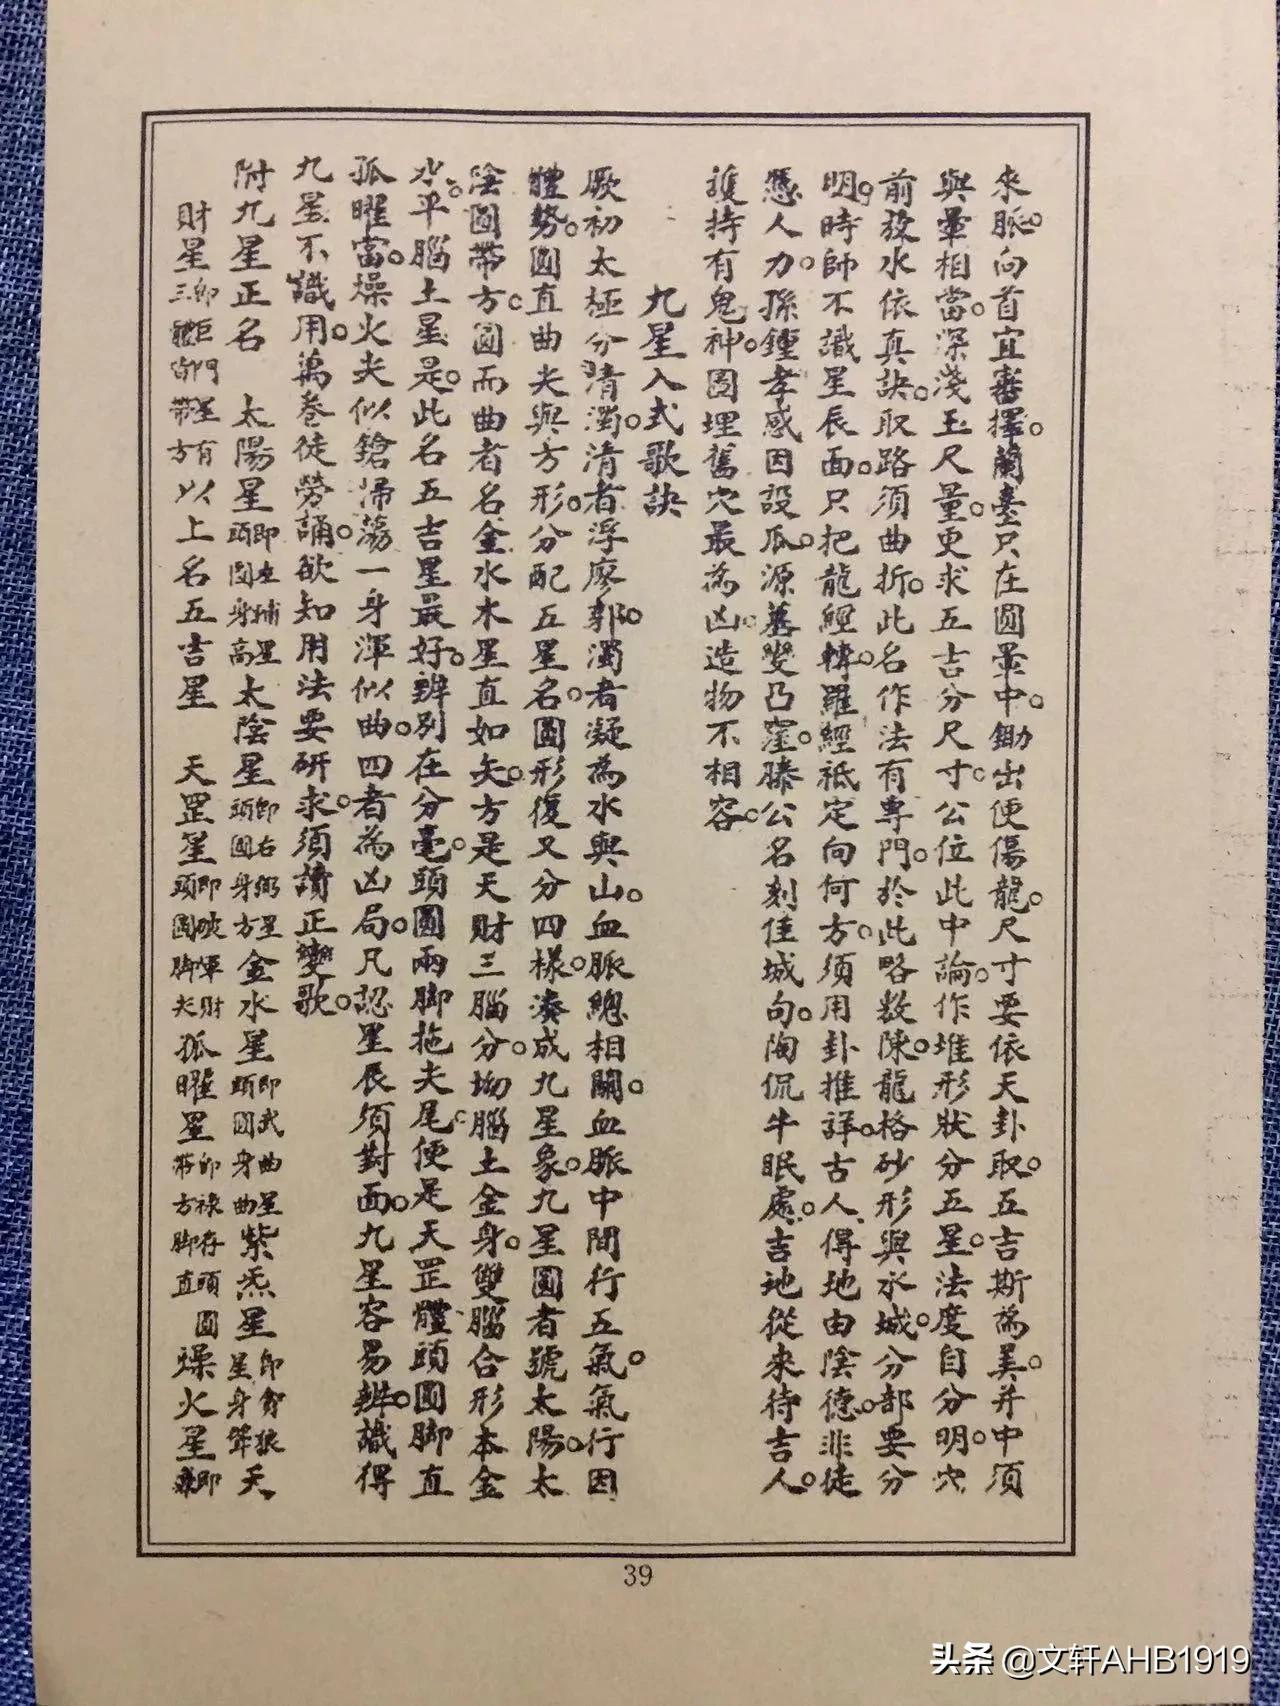 來脈。向首宜審擇。蘭臺只在圓暈中。鋤出便傷龍。尺寸要依天卦取。五吉斯為美。并中須
與暈相當。深淺玉尺量。更求五吉分尺寸。公位此中論。作堆形狀分五星。法度自分明。穴
前放水依真訣。取路須曲折。此名作法有專門。於此略敷陳。龍格砂形與水城。分部要分
明。時師不識星辰面。只把龍經轉。羅經祗定向何方。須用卦推詳。古人得地由陰德。非徒
憑人力。孫鍾孝感因設瓜。源墓雙凸窪。滕公名刻佳城句。陶侃牛眠處。吉地從來待吉人。
護持有鬼神。圖埋舊穴最為凶。造物不相容。
九星入式歌訣
厥初太極分清濁。清者浮廖郭。濁者凝為水與山。血脈總相關。血脈中間行五氣。氣行因
體勢。圓直曲尖與方形。分配五星名。圓形復又分四樣。湊成九星象。九星圓者號太陽。太
陰圓帶方。圓而曲者名金水。木星直如矢。方是天財三腦分。坳腦土金身。雙腦合形本金
水。平腦土星是。此名五吉星最好。辨別在分毫。頭圓兩脚拖尖尾。便是天罡體。頭圓脚直
孤曜當。燥火尖似鎗。掃蕩一身渾似曲。四者為凶局。凡認星辰須對面。九星容易辨。識得
九星不識用。萬卷徒勞誦。欲知用法要研求。須讀正變歌。
附九星正名　太陽星即左輔星頭圓身高太陰星即右弼星頭圓身方金水星即武曲星頭圓身曲紫炁星即貪狼星身聳天
財星即巨門星有三體皆帶方以上名五吉星　天罡星即破軍財頭圓脚尖孤曜星即祿存頭圓帶方脚直燥火星即
39
头条 @文轩AHB1919